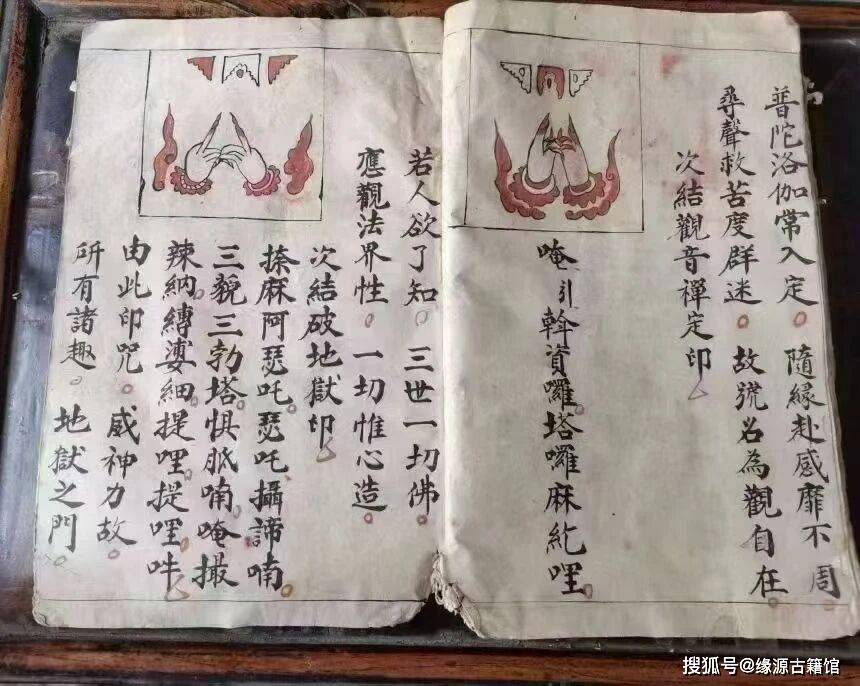 普陀洛伽常入定。隨緣赴感靡不周。
尋聲救苦度群迷。故號名為觀自在。
次結觀音禪定印
唵引斡資囉塔囉麻紇哩
若人欲了知。三世一切佛。
應觀法界性。一切惟心造。
次結破地獄印
捺麻阿瑟吒瑟吒攝諦喃
三貌三勃塔惧胝喃唵撮
辣納縛婆細提哩提哩吽
由此印咒。威神力故。
所有諸趣。地獄之門。
搜狐号@缘源古籍馆